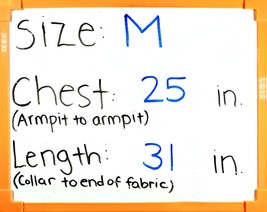 Size: M
Chest: 25 in.
(Armpit to armpit)
Length: 31 in.
(Collar to end of fabric)